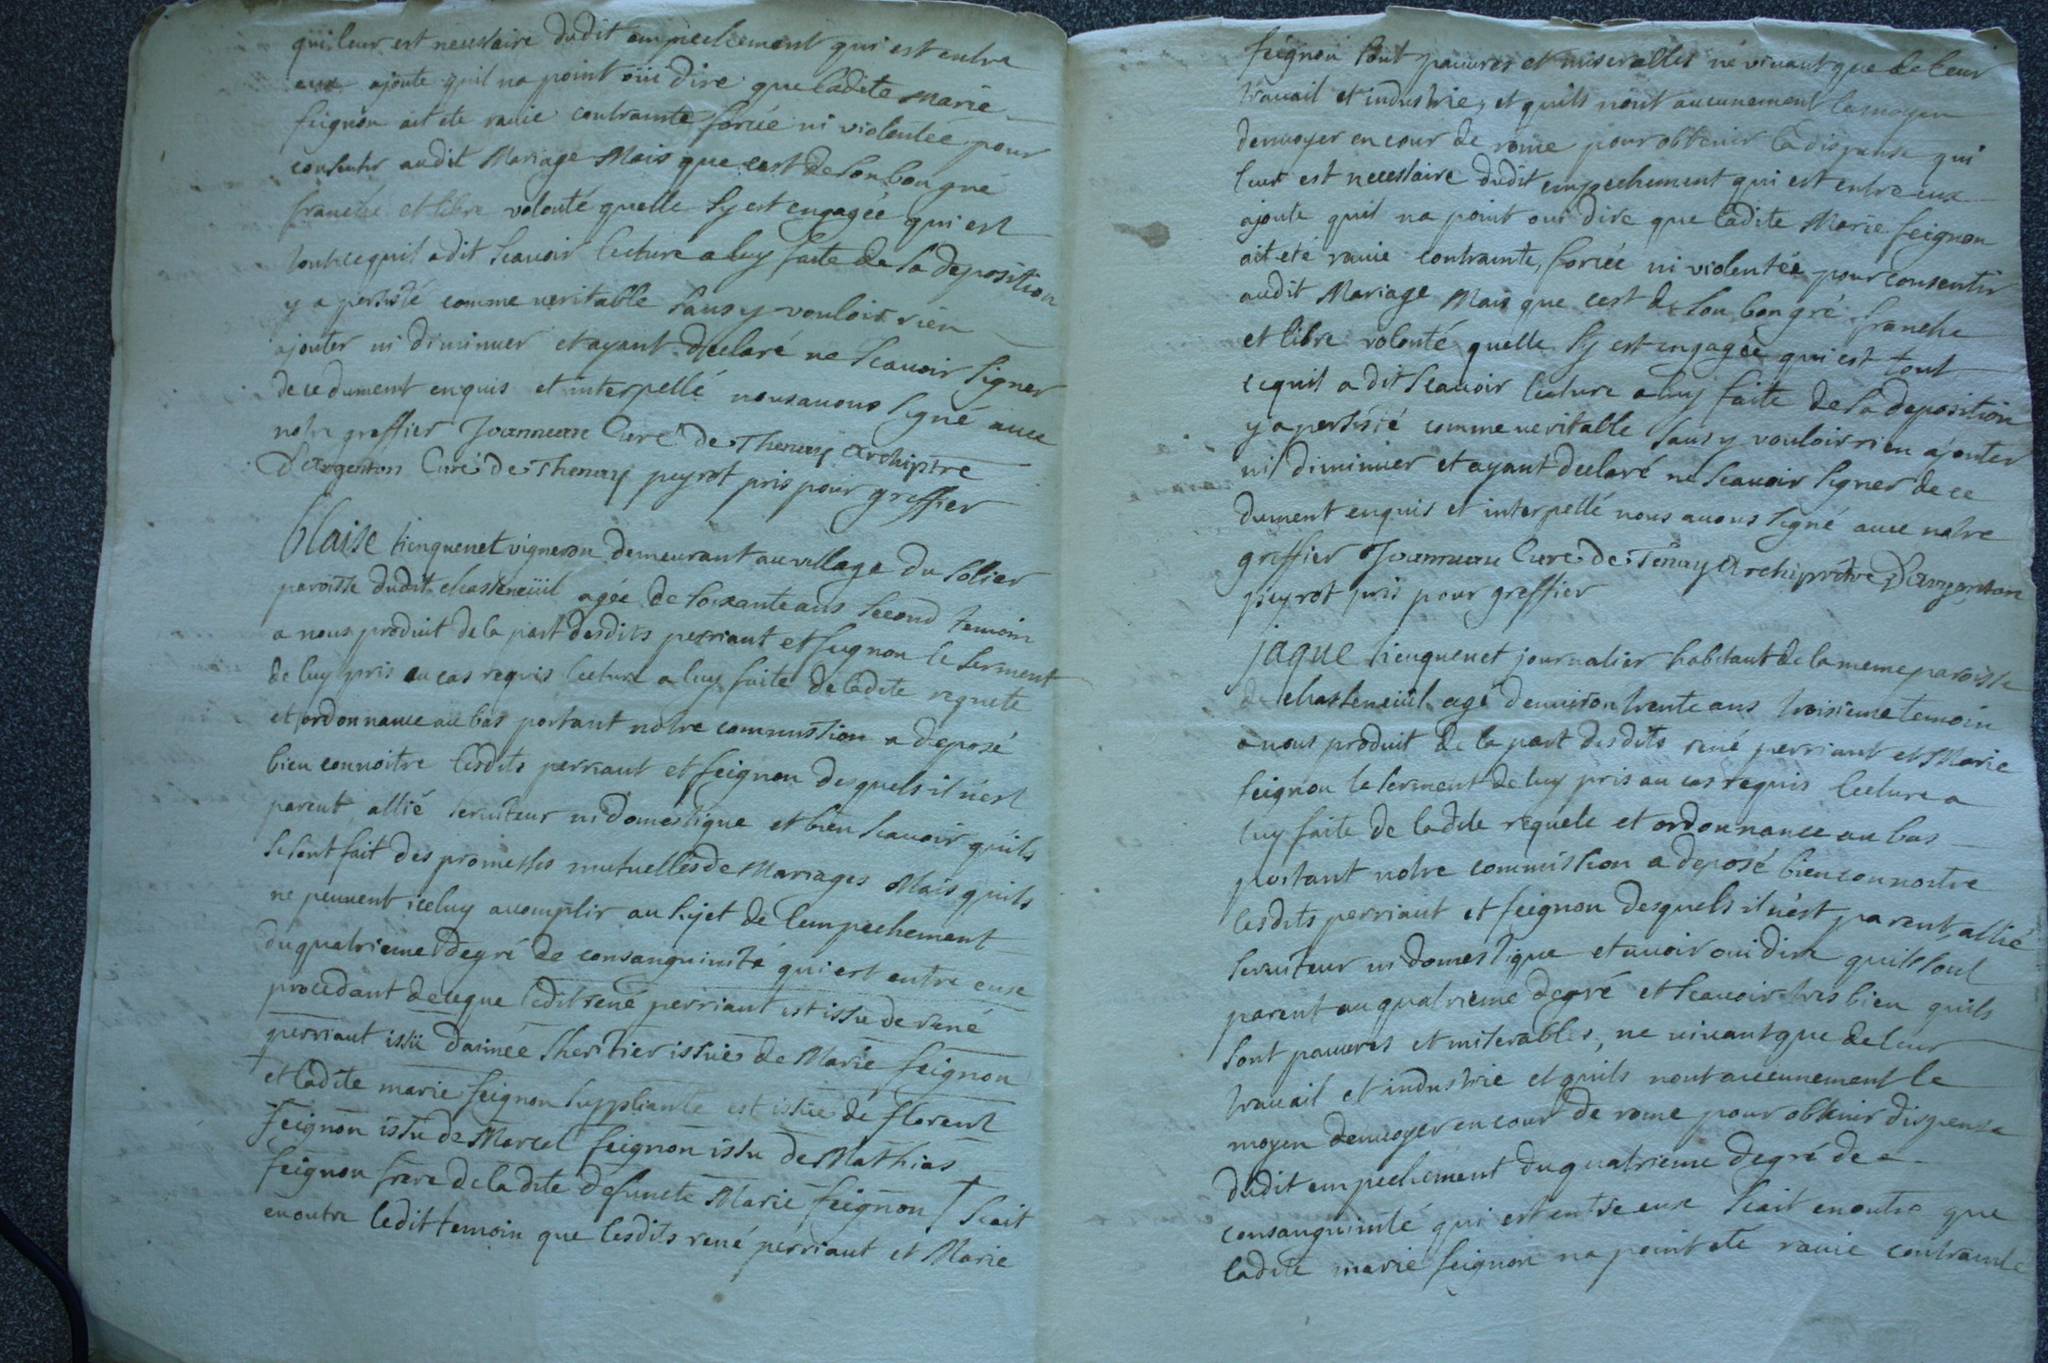 qui leur est necessaire dudit empeschement qui est entre
eux ajoute quil na point oüi dire que ladite Marie
feignon ait ete ravie contrainte forcée ni violentée pour
consentir audit Mariage Mais que cest de son bon gré
franche et libre volonté quelle sy est engagée qui est
tout ce quil a dit scavoir lecture a luy faite de sa deposition
y a persisté comme veritable sans y vouloir rien
ajouter ni diminuer et ayant declaré ne scavoir signer
de ce dument enquis et interpellé nous avons signé avec
notre greffier Joanneau Curé de Thenay archiptre
D'argenton Curé de Thenay peyrot pris pour greffier
blaise tienquenet vigneron demeurant au village du solier
paroisse dudit chasteneüil agée de soixante ans second temoin
a nous produit de la part desdits perriaut et feignon le serment
de luy pris au cas requis lecture a luy faite de ladite requete
et ordonnance au bas portant notre commission a deposé
bien connoitre lesdits perriaut et feignon desquels il n'est
parent allié serviteur ni domestique et bien scavoir quils
se sont fait des promesses mutuelles de Mariages Mais quils
ne peuvent iceluy acomplir au sujet de lempechement
du quatrieme degré de consanguinité qui est entre eux
procedant de ce que ledit rené perriaut est issu de rené
perriaut issü daimée lheritier issüe de Marie feignon
et ladite marie feignon suppliante est issüe de florent
feignon issu de Marcel feignon issu de Mathias
feignon frere de la dite defuncte Marie feignon † scait
en outre ledit temoin que lesdits rené perriaut et Marie
feignon sont pauvres et miserables ne vivant que de leur
travail et industrie, et quils n'ont aucunement le moyen
denvoyer en cour de rome pour obtenir la dispense qui
leur est necessaire dudit empechement qui est entre eux
ajoute quil na point oui dire que ladite Marie feignon
ait eté ravie contrainte, forcée ni violentée pour consentir
audit Mariage Mais que cest de son bon gré franche
et libre volonté quelle sy est engagée qui est tout
cequil a dit scavoir lecture a luy faite de sa deposition
y a persisté comme veritable sans y vouloir rien ajouter
ni diminuer et ayant declaré ne scavoir signer de ce
dument enquis et interpellé nous avons signé avec notre
greffier Joanneau Curé de Tenay Archiprêtre D'argenton
peyrot pris pour greffier
jaque tienquenet journalier habitant de la meme paroisse
de chasteneüil agé denviron trente ans troisieme temoin
a nous produit de la part desdits rené perriaut et Marie
feignon le serment de luy pris au cas requis lecture a
luy faite de ladite requete et ordonnance au bas
portant notre commission a deposé bien connoitre
lesdits perriaut et feignon desquels il n'est parent, allié
serviteur ni domestique et avoir oui dire quils sont
parent au quatrieme degré et scavoir tres bien quils
sont pauvres et miserables, ne vivant que de leur
travail et industrie et quils nont aucunement le
moyen denvoyer en cour de rome pour obtenir dispense
dudit empechement du quatrieme degré de
consanguinité qui est entre eux scait en outre que
ladite marie feignon na point ete ravie contrainte